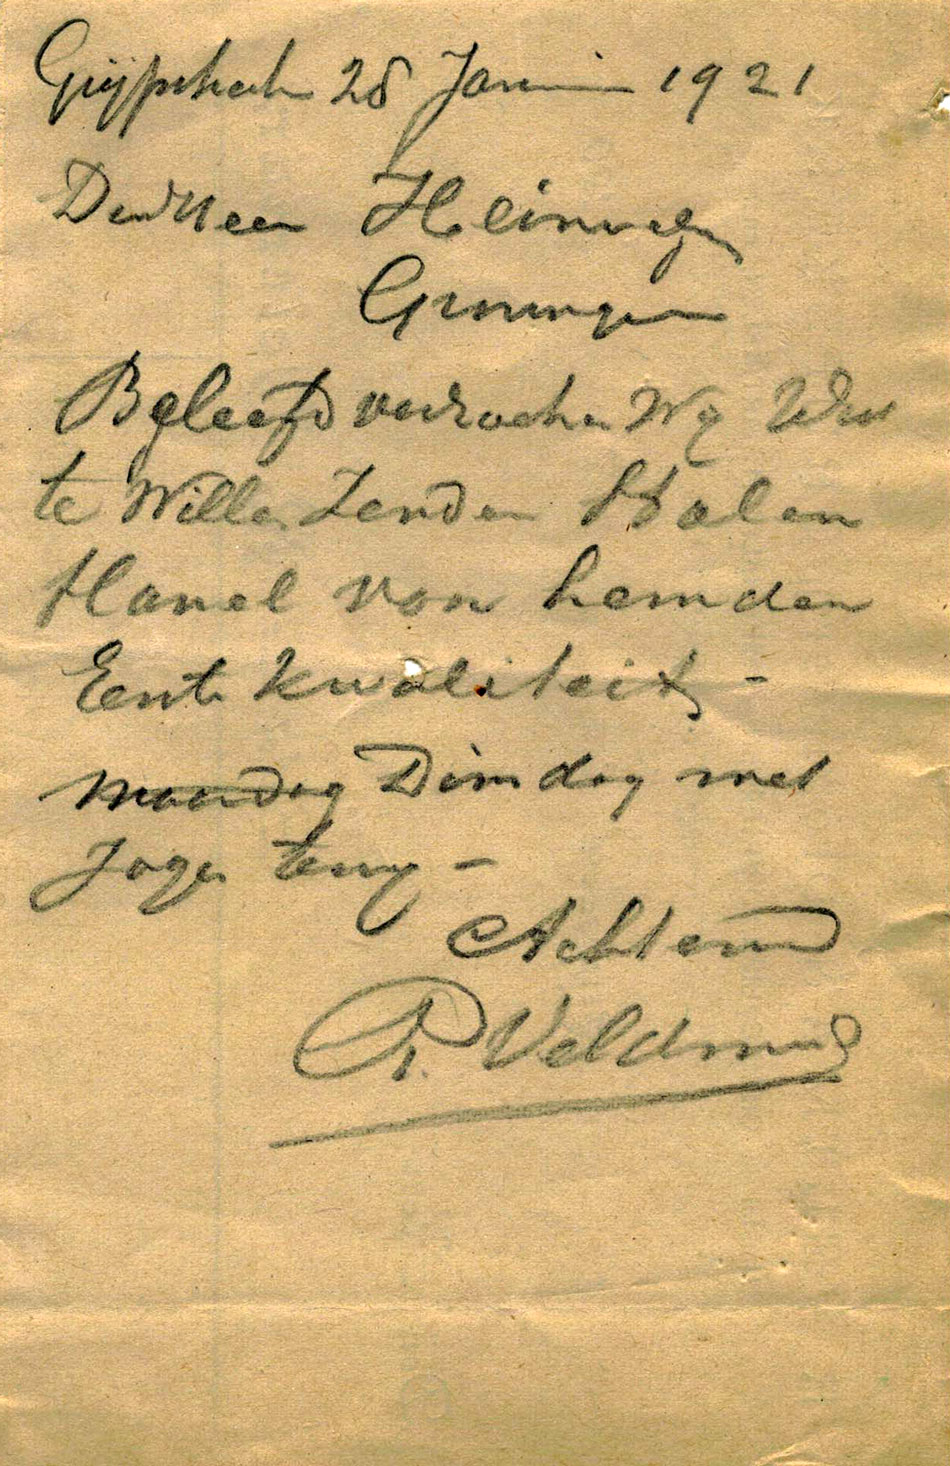 Grijpskerk 28 Januari 1921
Den Heer Heinvegen
Groningen
Beleefd verzoeken Wij
te Willen Zenden Stalen
flanel van hemden
Eerste kwaliteit -
maandag Dinsdag met
Jager terug -
Achtend
P. Veldman